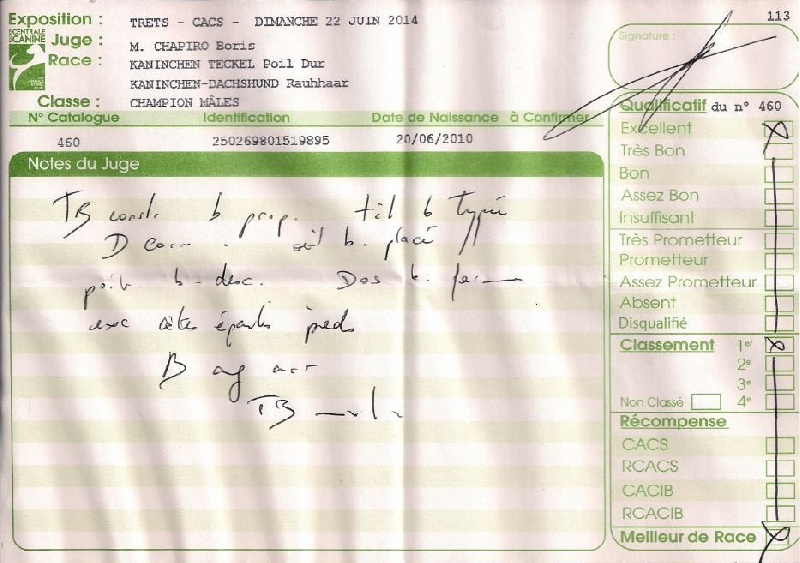 113
Exposition : TRETS - CACS - DIMANCHE 22 JUIN 2014
CENTRALE CANINE
Juge : M. CHAPIRO Boris
Race : KANINCHEN TECKEL Poil Dur
KANINCHEN-DACHSHUND Rauhhaar
Classe : CHAMPION MÂLES
N° Catalogue Identification Date de Naissance à Confirmer
460 250269801519895 20/06/2010
Notes du Juge
TB const. b prop. tét b typée
D œil b. placé
poit b. desc. Dos b.
exc côtes épaules pieds
B ang
TB
Signature :
Qualificatif du n° 460
Excellent X
Très Bon
Bon
Assez Bon
Insuffisant
Très Prometteur
Prometteur
Assez Prometteur
Absent
Disqualifié
Classement 1er X
2e
3e
Non Classé 4e
Récompense
CACS
RCACS
CACIB
RCACIB
Meilleur de Race X